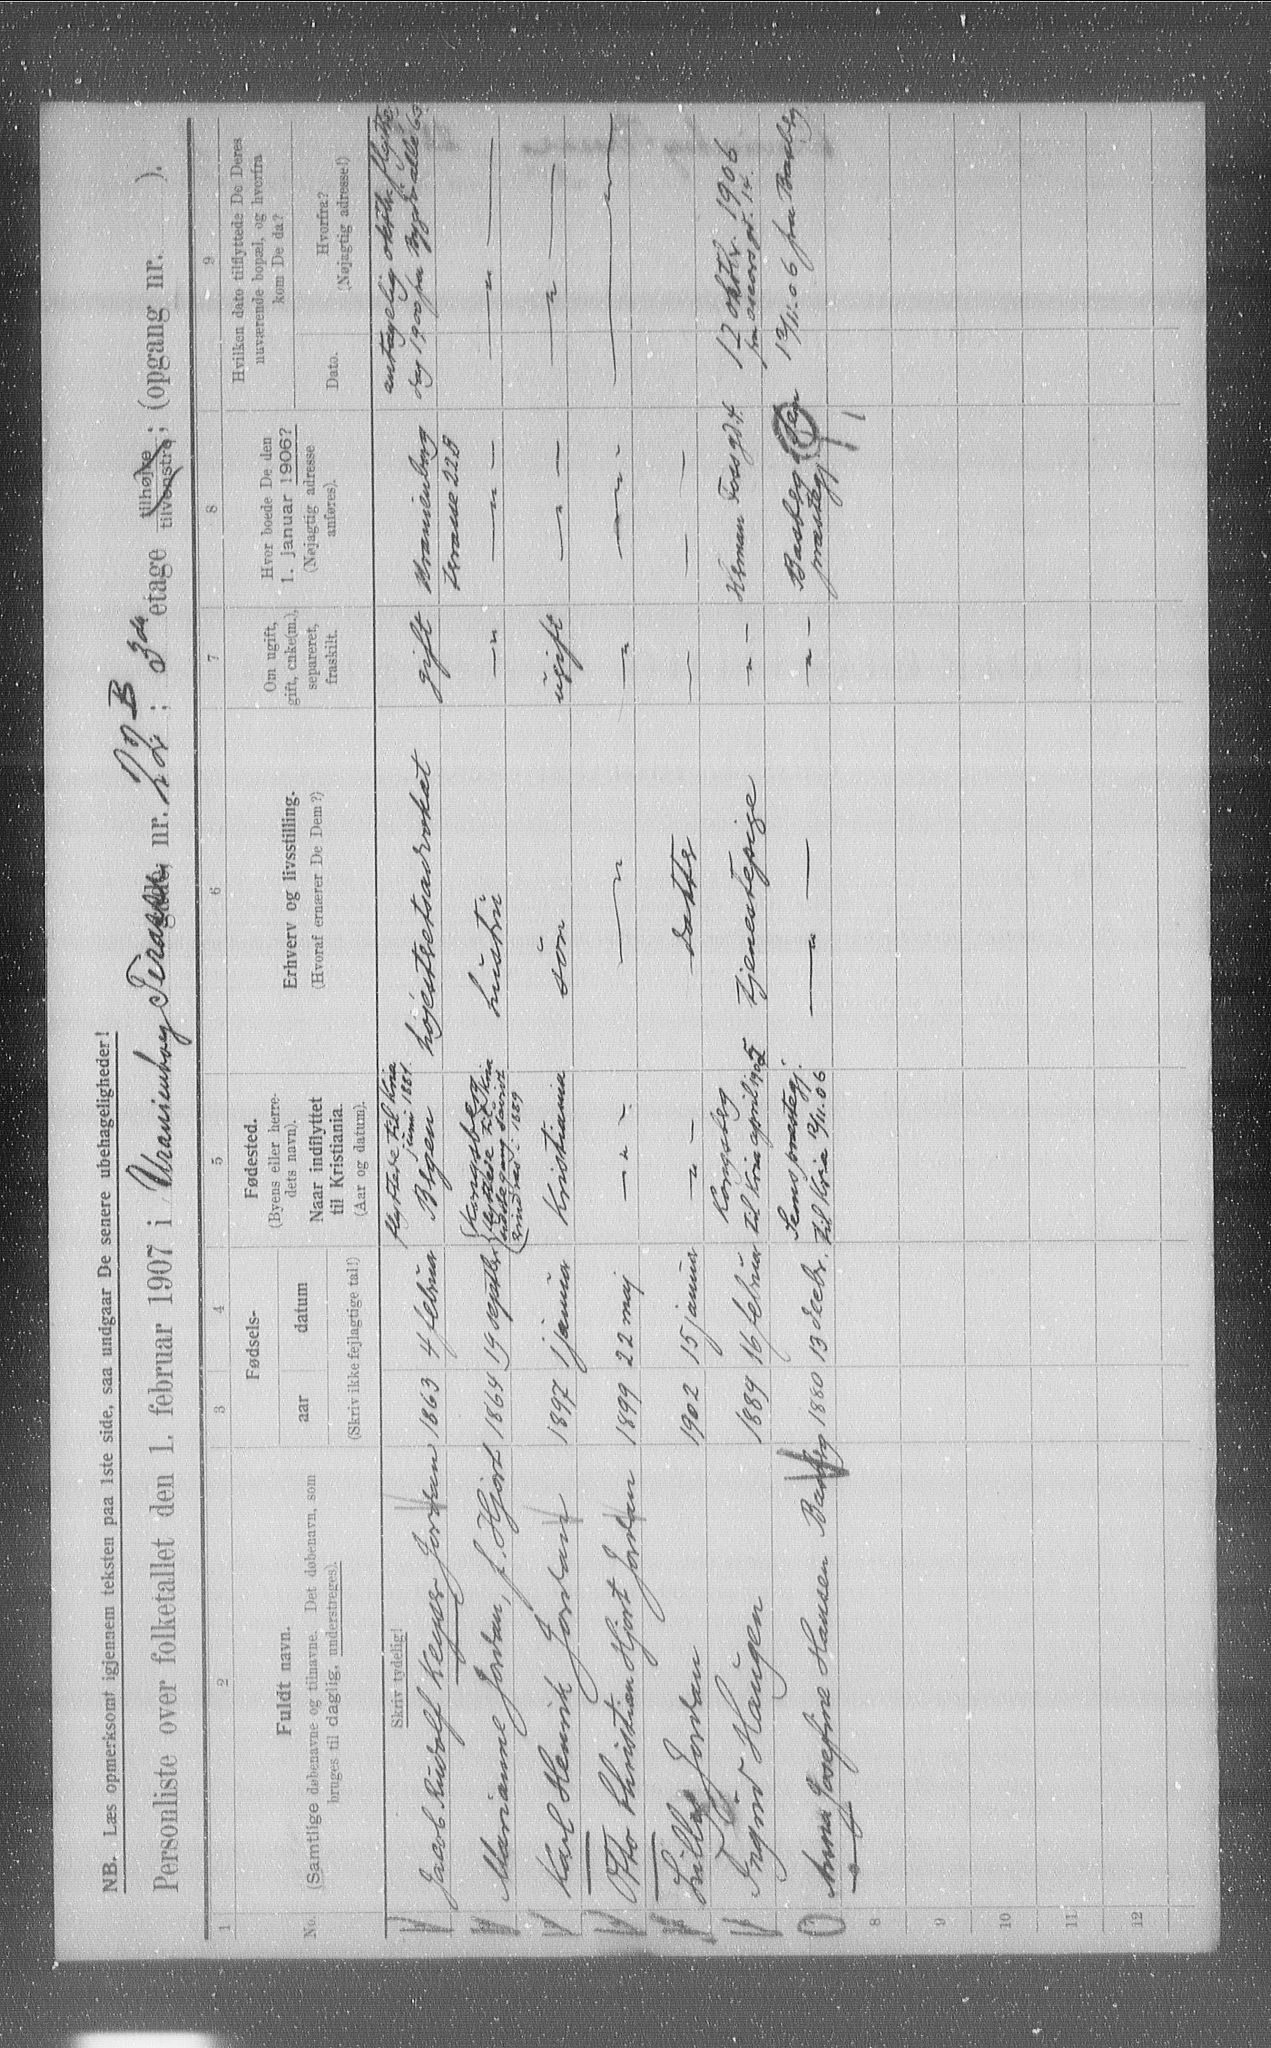 NB. Læs opmerksomt igjennem teksten paa 1ste side, saa undgaar De senere ubehageligheder!
Personliste over folketallet den 1. februar 1907 i Uranienborg Terasse gade, nr. 22 B ; 3de etage tilhøjre tilvenstre ; (opgang nr. ).
1 2 3 4 5 6 7 8 9
No.
Fuldt navn.
(Samtlige døbenavne og tilnavne. Det døbenavn, som
bruges til daglig, understreges).
Fødsels-
aar datum
(Skriv ikke fejlagtige tal!)
Fødested.
(Byens eller herre-
dets navn).
Naar indflyttet
til Kristiania.
(Aar og datum).
Erhverv og livsstilling.
(Hvoraf ernærer De Dem?)
Om ugift,
gift, enke(m.),
separeret,
fraskilt.
Hvor boede De den
1. januar 1906?
(Nøjagtig adresse
anføres).
Hvilken dato tilflyttede De Deres
nuværende bopæl, og hvorfra
kom De da?
Dato.
Hvorfra?
(Nøjagtig adresse!)
Skriv tydelig!
Jacob Rudolf Keyser Jordan 1863 4 februar flyttede til Kria juni 1881. Bergen højesteretsadvokat gift Uranienborg terasse 22B antagelig oktbr flytte-dag 1900 fra Bygdø allé 63
Marianne Jordan, f. Hjort 1864 19 septbr. Kongsberg flyttede til Kria 1889 hustru — " — — " — — " —
Karl Henrik Jordan 1897 1 januar Kristiania søn ugift — " — — " —
Otto Christian Hjort Jordan 1899 22 maj — " — — " — — " — — " —
Lillie Jordan 1902 15 januar — " — datter — —
Ingrid Haugen 1884 16 februar Kongsberg til Kria april 1905 tjenestepige — " — Herman Foss gd. 4 12 oktbr. 1906 fra Oscars gd. 14.
Anna Josefine Hansen Basberg 1880 13 decbr. Sems præstegj. til Kria 12/11.06 — " — — " — Basberg Sem præstegj. 12/11.06 fra Basberg
8
9
10
11
12